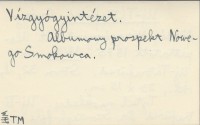 Vízgyógyintézet.
Albumowy prospekt Nowe-
go Smokowca.
TM